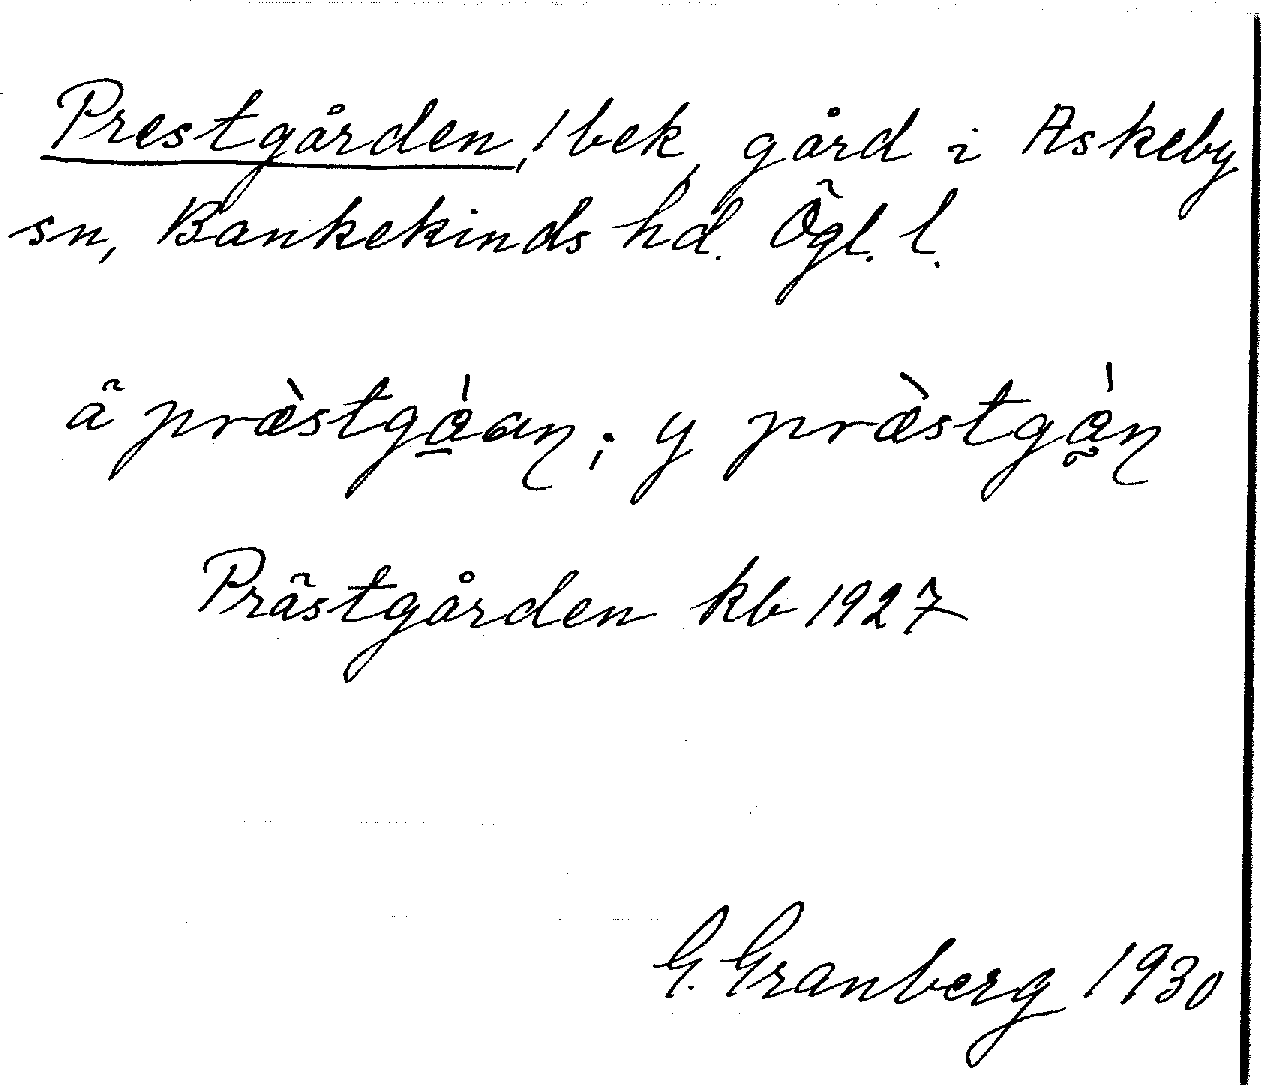 Prestgården, 1 bek, gård i Askeby
sn, Bankekinds hd. Ögl. l.
ä præ̀stgå̀an; y præ̀stgå̀n
Prästgården kb 1927
G. Granberg 1930